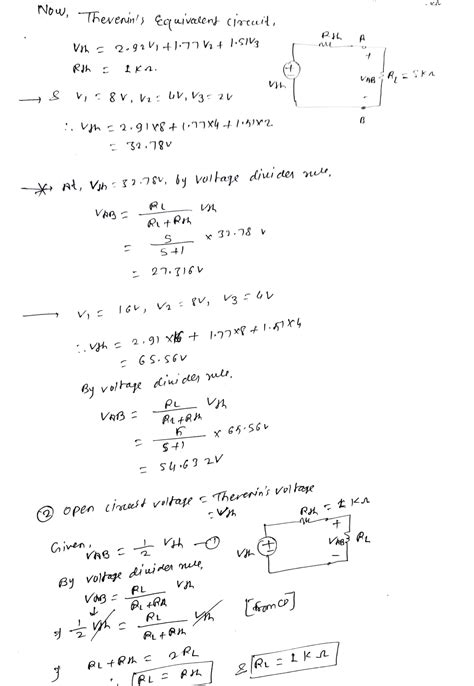 Now, Thevenin's Equivalent circuit,
Vth = 2.92V1 + 1.77V2 + 1.51V3
Rth = 1KΩ.
Rth A
+
Vth
VAB RL = 5KΩ
B
→ & V1 = 8V, V2 = 4V, V3 = 2V
∴ Vth = 2.91×8 + 1.77×4 + 1.51×2
= 32.78V
At, Vth = 32.78V, by voltage divider rule,
VAB = RL / (RL + Rth) Vth
= 5 / (5+1) × 32.78 V
= 27.316V
→ V1 = 16V, V2 = 8V, V3 = 4V
∴ Vth = 2.91×16 + 1.77×8 + 1.51×4
= 65.56V
By voltage divider rule,
VAB = RL / (RL + Rth) Vth
= 5 / (5+1) × 65.56V
= 54.632V
② Open circuit voltage = Thevenin's voltage
= Vth
Rth = 1KΩ
+
Vth
VAB RL
-
Given,
VAB = 1/2 Vth — ①
By voltage divider rule,
VAB = RL / (RL + Rth) Vth
⇒ 1/2 Vth = RL / (RL + Rth) Vth [from ①]
⇒ RL + Rth = 2RL
∴ RL = Rth & RL = 1KΩ